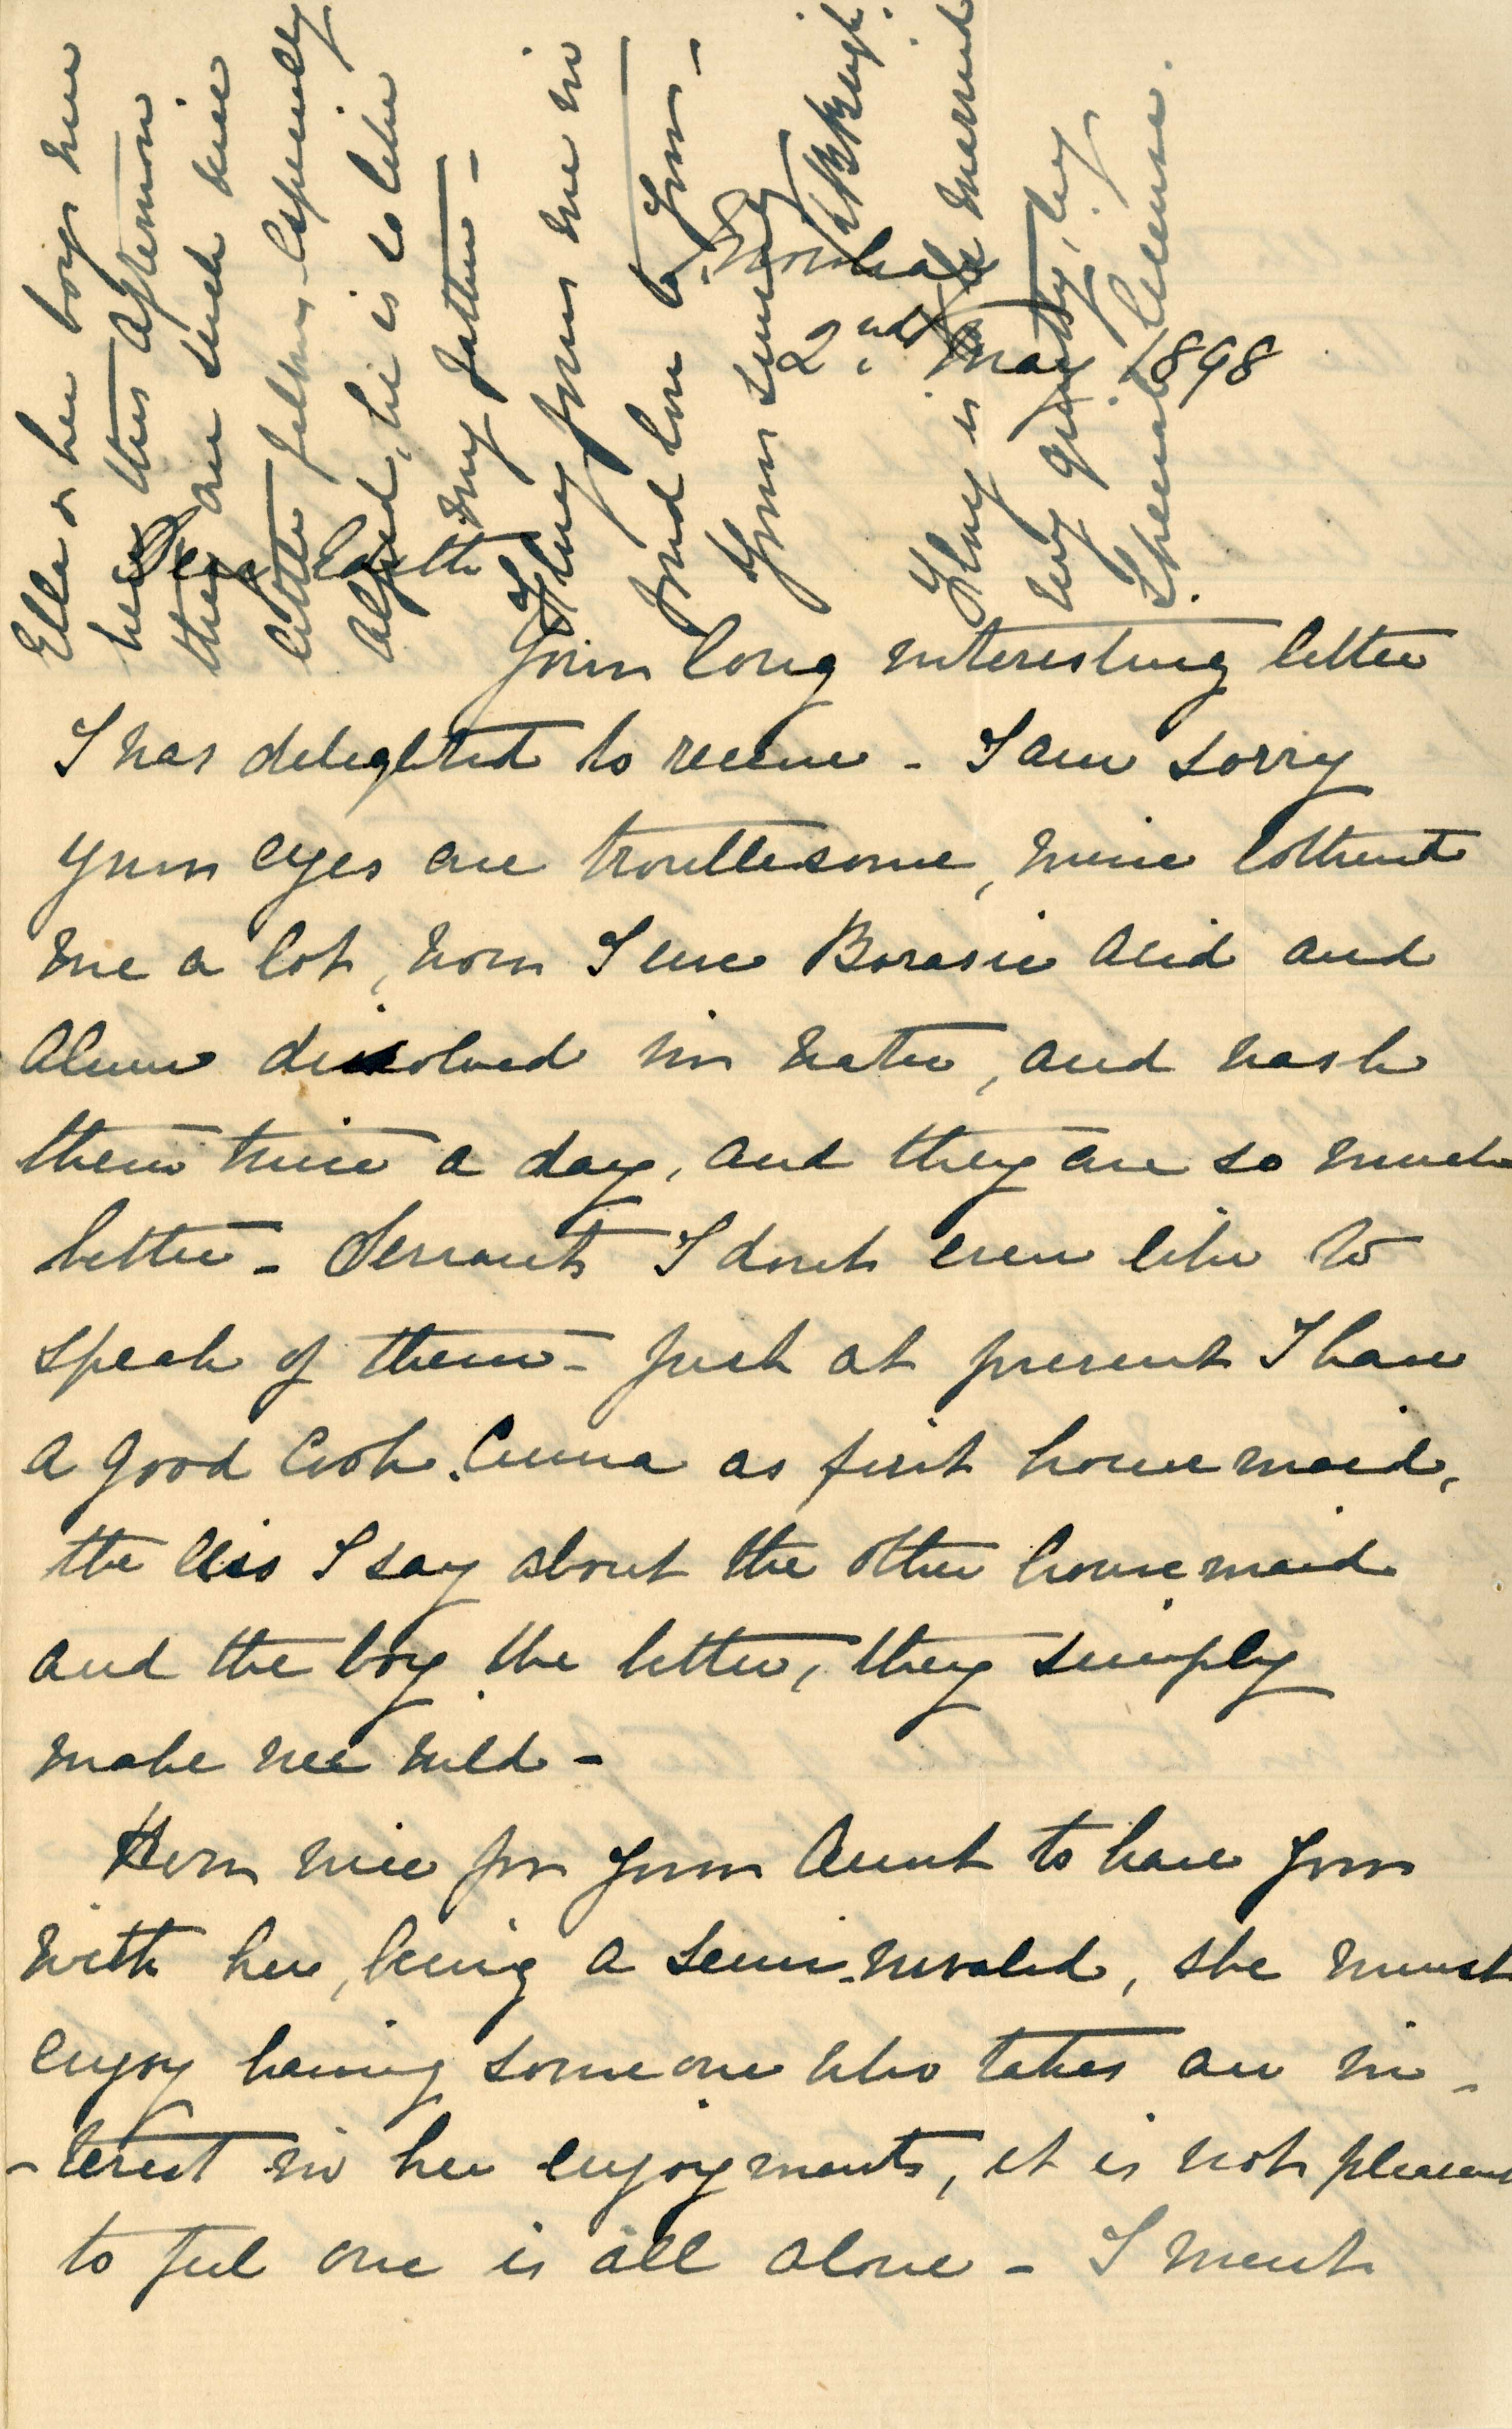 2nd May 1898
Dear Edith
Your long interesting letter
I was delighted to receive - I am sorry
your eyes are troublesome, mine bothered
me a lot, now I use Borasic acid and
Alum dissolved in water, and wash
them twice a day, and they are so much
better - Servants I don't even like to
speak of them - just at present I have
a good Cook. Anna as first housemaid,
the less I say about the other housemaid
and the boy the better, they simply
make me wild -
How nice for your Aunt to have you
with her, being a semi-invalid, she must
enjoy having some one who takes an in-
-terest in her enjoyments, it is not pleasant
to feel one is all alone - I must
Ella & her boys were
here this afternoon
they are such nice
little fellows - especially
Alfred, he is so like
my father -
Harry joins me in
fond love to you -
Yours sincerely
Harry is married
very quietly, by
Special license.